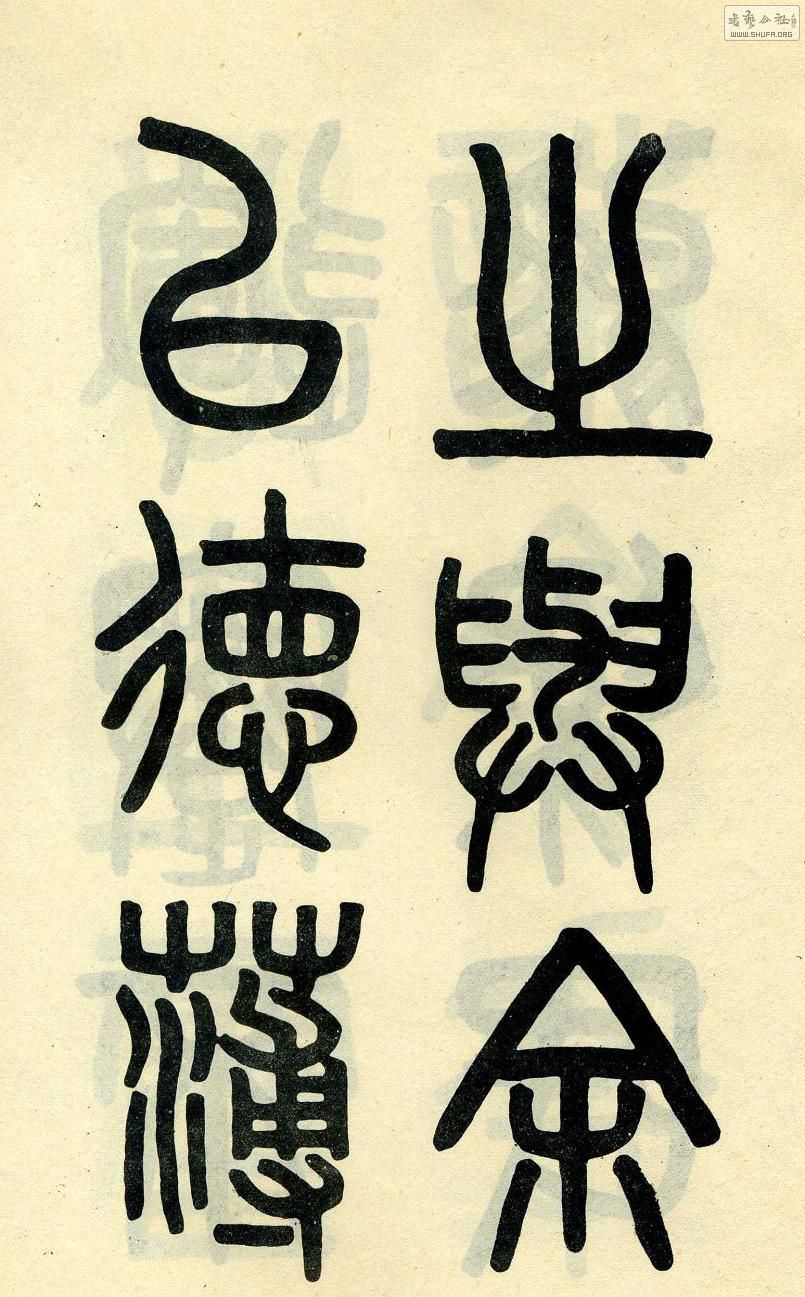 之與余
以德薄
書藝公社
WWW.SHUFA.ORG